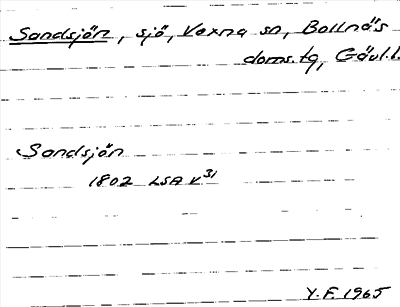 Sandsjön, sjö, Voxna sn, Bollnäs
doms.tg, Gävl.l.
Sandsjön
1802 LSA V31
Y.F. 1965